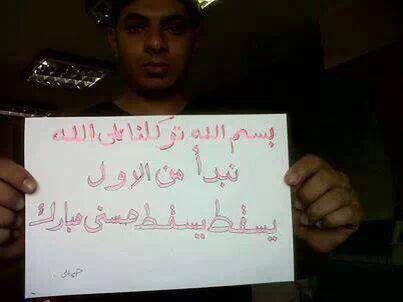 بسم الله توكلنا على الله
نبدأ من الاول
يسقط يسقط حسنى مبارك